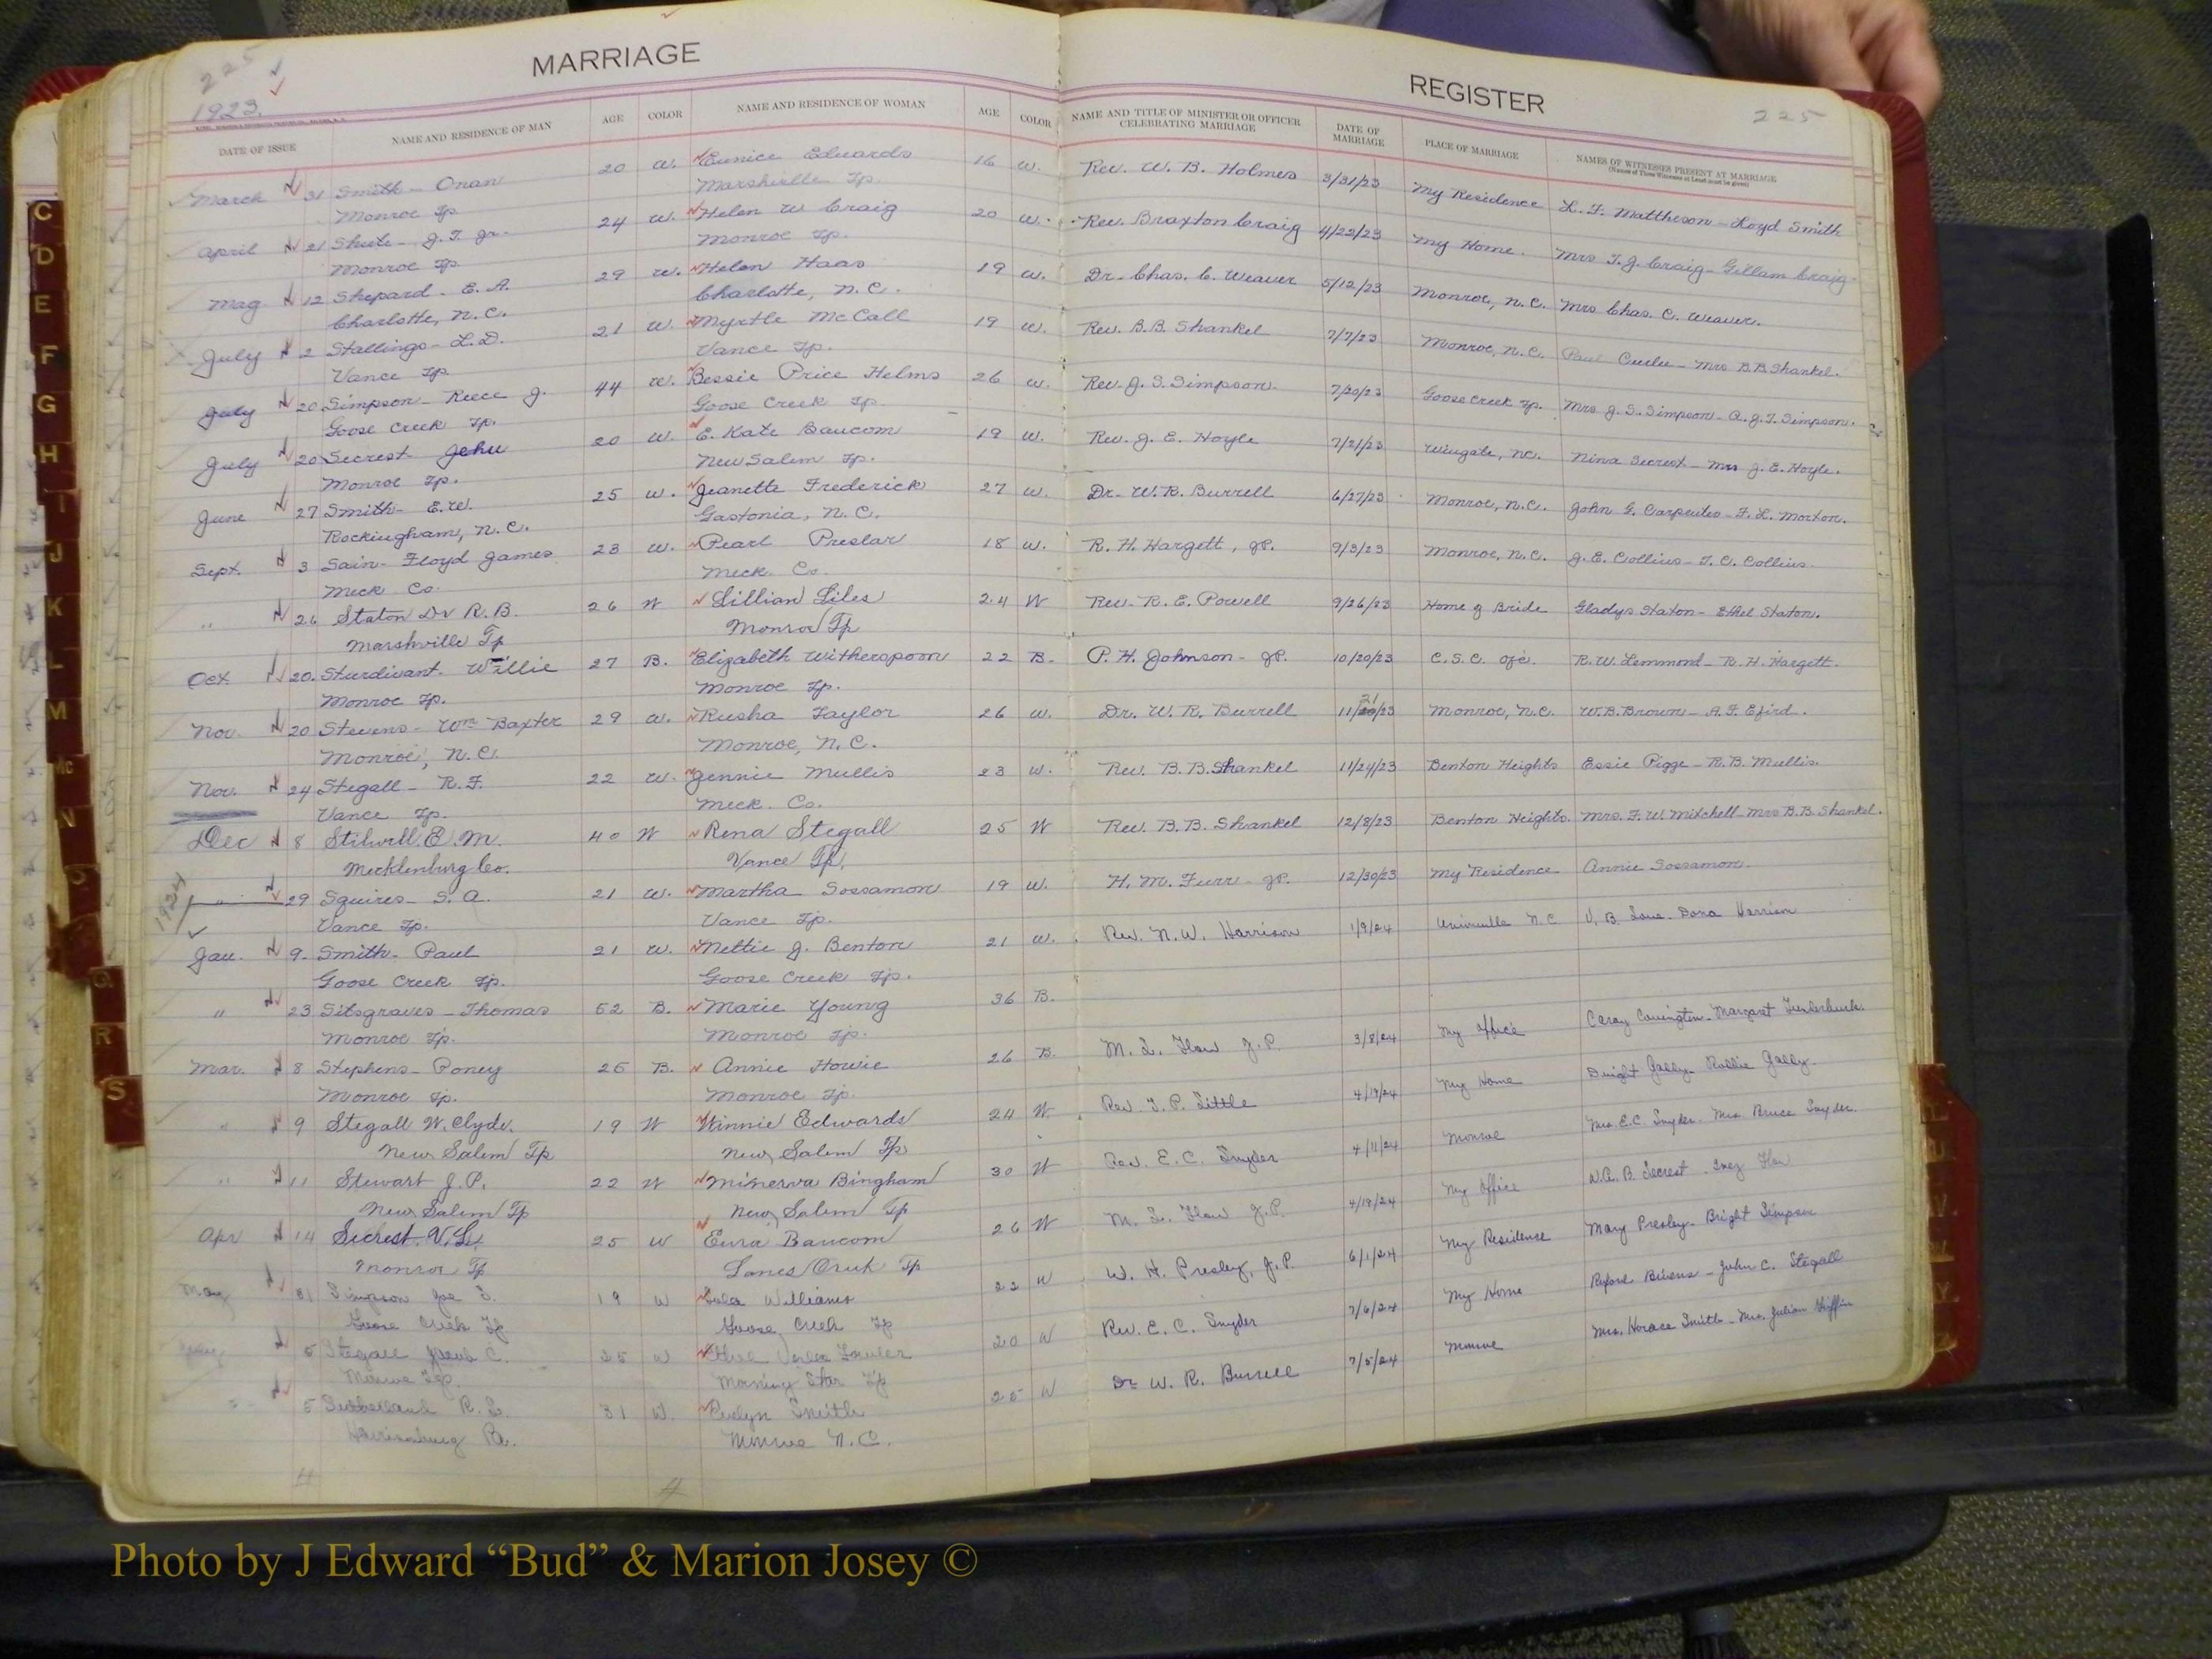 MARRIAGE REGISTER
225 225
1923.
DATE OF ISSUE NAME AND RESIDENCE OF MAN AGE COLOR NAME AND RESIDENCE OF WOMAN AGE COLOR NAME AND TITLE OF MINISTER OR OFFICER CELEBRATING MARRIAGE DATE OF MARRIAGE PLACE OF MARRIAGE NAMES OF WITNESSES PRESENT AT MARRIAGE
(Names of Three Witnesses at Least must be given)
March 31 Smith - Onan 20 W. Eunice Edwards 16 W. Rev. W. B. Holmes 3/31/23 My Residence L. F. Mattheson - Loyd Smith
Monroe Tp Marshville Tp.
April 21 Shute - J. T. Jr. 24 W. Helen W Craig 20 W. Rev. Braxton Craig 4/22/23 My Home. Mrs T. J. Craig - Gillam Craig
Monroe Tp Monroe Tp.
May 12 Shepard - E. A. 29 W. Helen Haas 19 W. Dr. Chas. C. Weaver 5/12/23 Monroe, N. C. Mrs Chas. C. Weaver.
Charlotte, N. C. Charlotte, N. C.
July 2 Stallings - L. D. 21 W. Myrtle McCall 19 W. Rev. B. B. Shankel 7/7/23 Monroe, N. C. Paul - Mrs B B Shankel.
Vance Tp Vance Tp.
July 20 Simpson - Reece J. 44 W. Bessie Price Helms 26 W. Rev. J. S. Simpson. 7/20/23 Goose Creek Tp. Mrs J. S. Simpson - A. J. T. Simpson.
Goose Creek Tp. Goose Creek Tp.
July 20 Secrest - John 20 W. E. Kate Baucom 19 W. Rev. J. E. Hoyle 7/21/23 Wingate, NC. Nina Secrest - Mrs J. E. Hoyle.
Monroe Tp. New Salem Tp.
June 27 Smith - E. W. 25 W. Jeanette Frederick 27 W. Dr. W. R. Burrell 6/27/23 Monroe, N. C. John G. Carpenter - F. L. Morton.
Rockingham, N. C. Gastonia, N. C.
Sept. 3 Sain - Floyd James 23 W. Pearl Preslar 18 W. R. H. Hargett, JP. 9/3/23 Monroe, N. C. J. E. Collins - T. C. Collins.
Meck Co. Meck. Co.
" 26 Staton Dr R. B. 26 W Lillian Liles 24 W Rev. R. E. Powell 9/26/23 Home of Bride Gladys Staton - Ethel Staton.
Marshville Tp Monroe Tp
Oct 20. Sturdivant - Willie 27 B. Elizabeth Witherspoon 22 B. P. H. Johnson - JP. 10/20/23 C. S. C. Ofc. R. W. Lemmond - R. H. Hargett.
Monroe Tp. Monroe Tp.
Nov. 20 Stevens - Wm Baxter 29 W. Rusha Taylor 26 W. Dr. W. R. Burrell 11/21/23 Monroe, N. C. W. B. Brown - A. F. Efird.
Monroe, N. C. Monroe, N. C.
Nov. 24 Stegall - R. F. 22 W. Jennie Mullis 23 W. Rev. B. B. Shankel 11/24/23 Benton Heights Essie Pigge - R. B. Mullis.
Vance Tp. Meck. Co.
Dec 8 Stilwell E. M. 40 W Rena Stegall 25 W Rev. B. B. Shankel 12/8/23 Benton Heights. Mrs. F. W. Mitchell - Mrs B. B. Shankel.
Mecklenburg Co. Vance Tp.
" 29 Squires - S. A. 21 W. Martha Sossamon 19 W. H. M. Furr - JP. 12/30/23 My Residence Annie Sossamon.
1924
Vance Tp. Vance Tp.
Jan. 9 Smith - Paul 21 W. Nettie J. Benton 21 W. Rev. N. W. Harrison 1/9/24 Unionville N. C V. B. Love - Dona Harrison
Goose Creek Tp. Goose Creek Tp.
" 23 Sitsgraves - Thomas 52 B. Marie Young 36 B.
Monroe Tp. Monroe Tp.
Mar. 8 Stephens - Poney 26 B. Annie Howie 26 B. M. L. Flow J. P. 3/8/24 My Office Covington - Margaret Funderburk.
Monroe Tp. Monroe Tp.
" 9 Stegall W. Clyde. 19 W Winnie Edwards 24 W Rev. J. P. Little 4/19/24 My Home Dwight - Rollie
New Salem Tp New Salem Tp
" 11 Stewart J. P. 22 W Minerva Bingham 30 W Rev. E. C. Snyder 4/11/24 Monroe Mrs. E. C. Snyder. Mrs. Bruce Snyder.
New Salem Tp New Salem Tp
Apr 14 Secrest. V. L. 25 W Eura Baucom 26 W M. L. Flow J. P. 4/19/24 My Office W. A. B. Secrest - Inez Flow
Monroe Tp Lanes Creek Tp
May 31 Simpson Joe S. 19 W Lola Williams 22 W W. H. Presley, J. P. 6/1/24 My Residence Mary Presley - Bright Simpson
Goose Creek Tp Goose Creek Tp
5 Stegall Jacob C. 25 W 20 W Rev. E. C. Snyder 7/6/24 My Home Bivens - John C. Stegall
Monroe Tp. Morning Star Tp
" 5 Sutherland R. L. 31 W. Evelyn Smith 25 W Dr W. R. Burrell 7/5/24 Monroe Mrs. Horace Smith - Mrs. Julian Griffin
Harrisburg Pa. Monroe N. C.
C
D
E
F
G
H
I
J
K
L
M
Mc
N
O
Q
R
S
Photo by J Edward “Bud” & Marion Josey ©